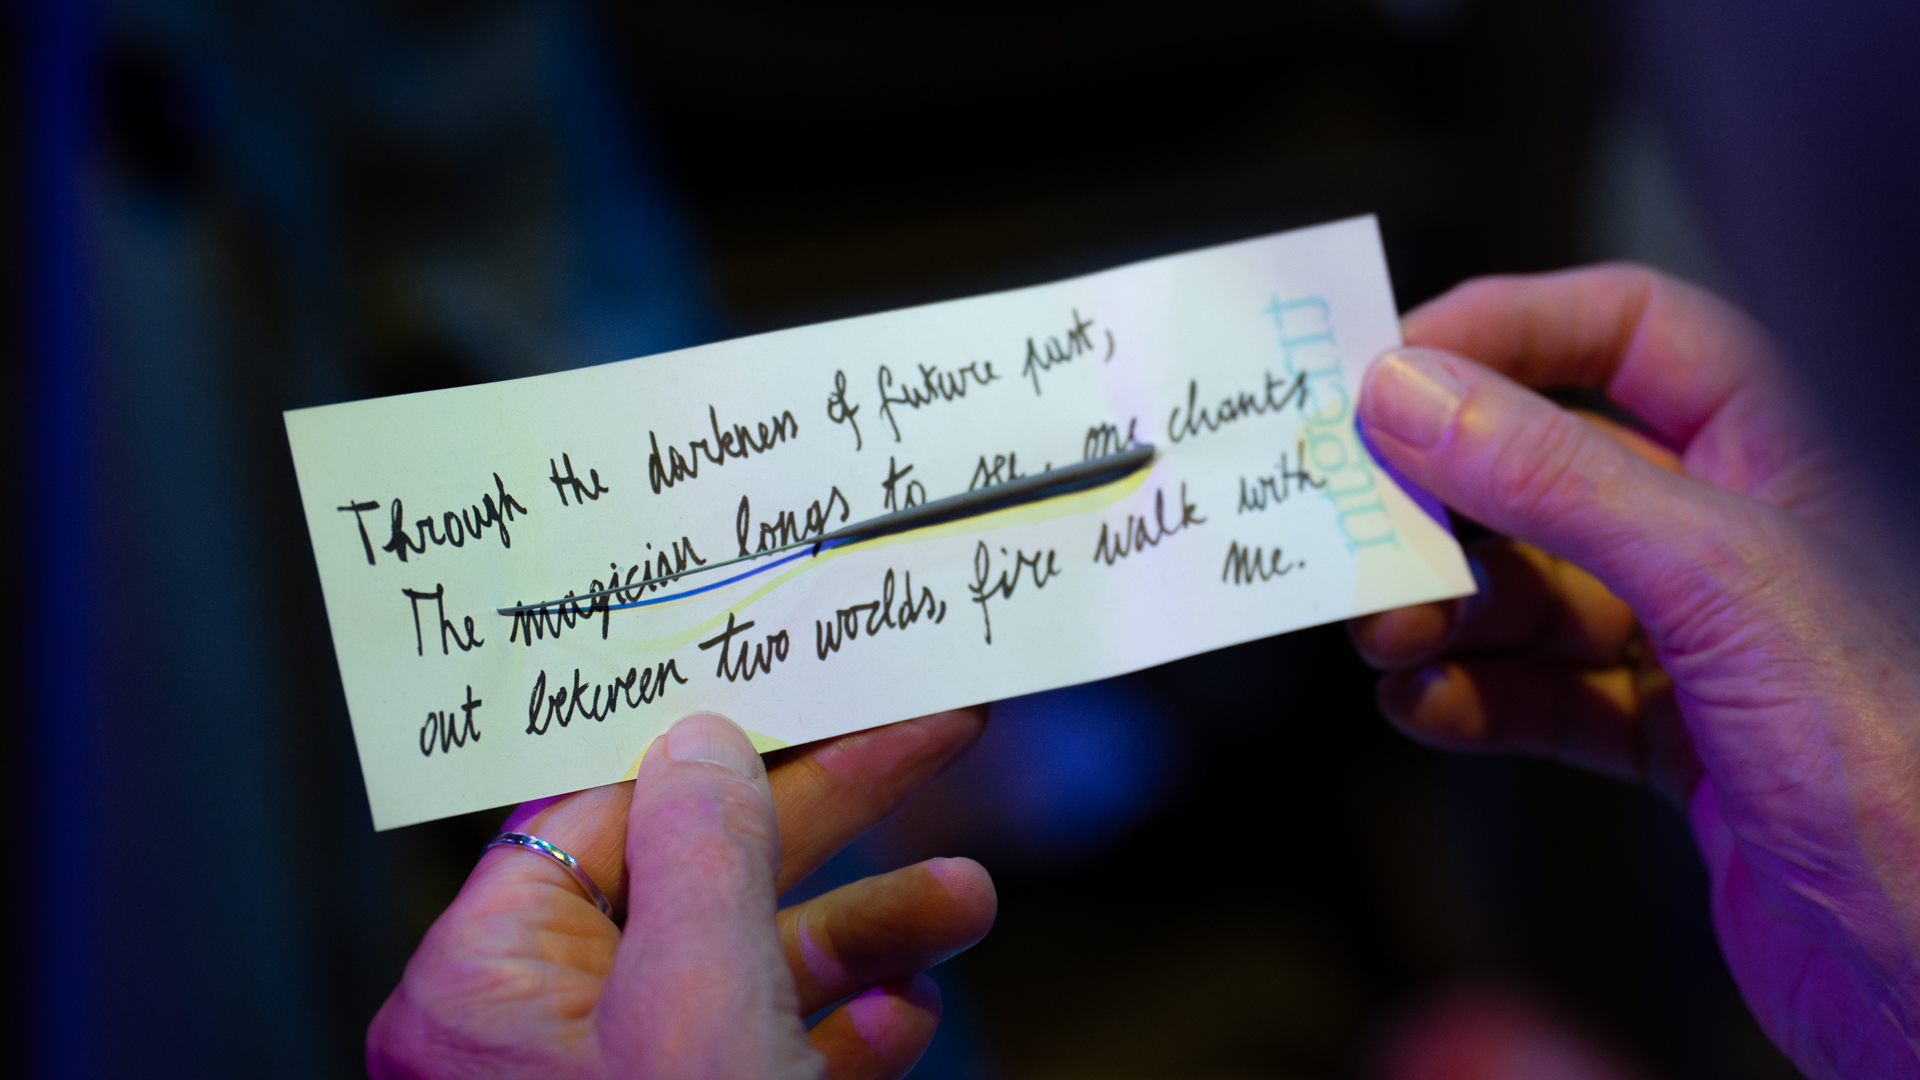 Through the darkness of future past,
The magician longs to see, one chants
out between two worlds, fire walk with
me.
nugent